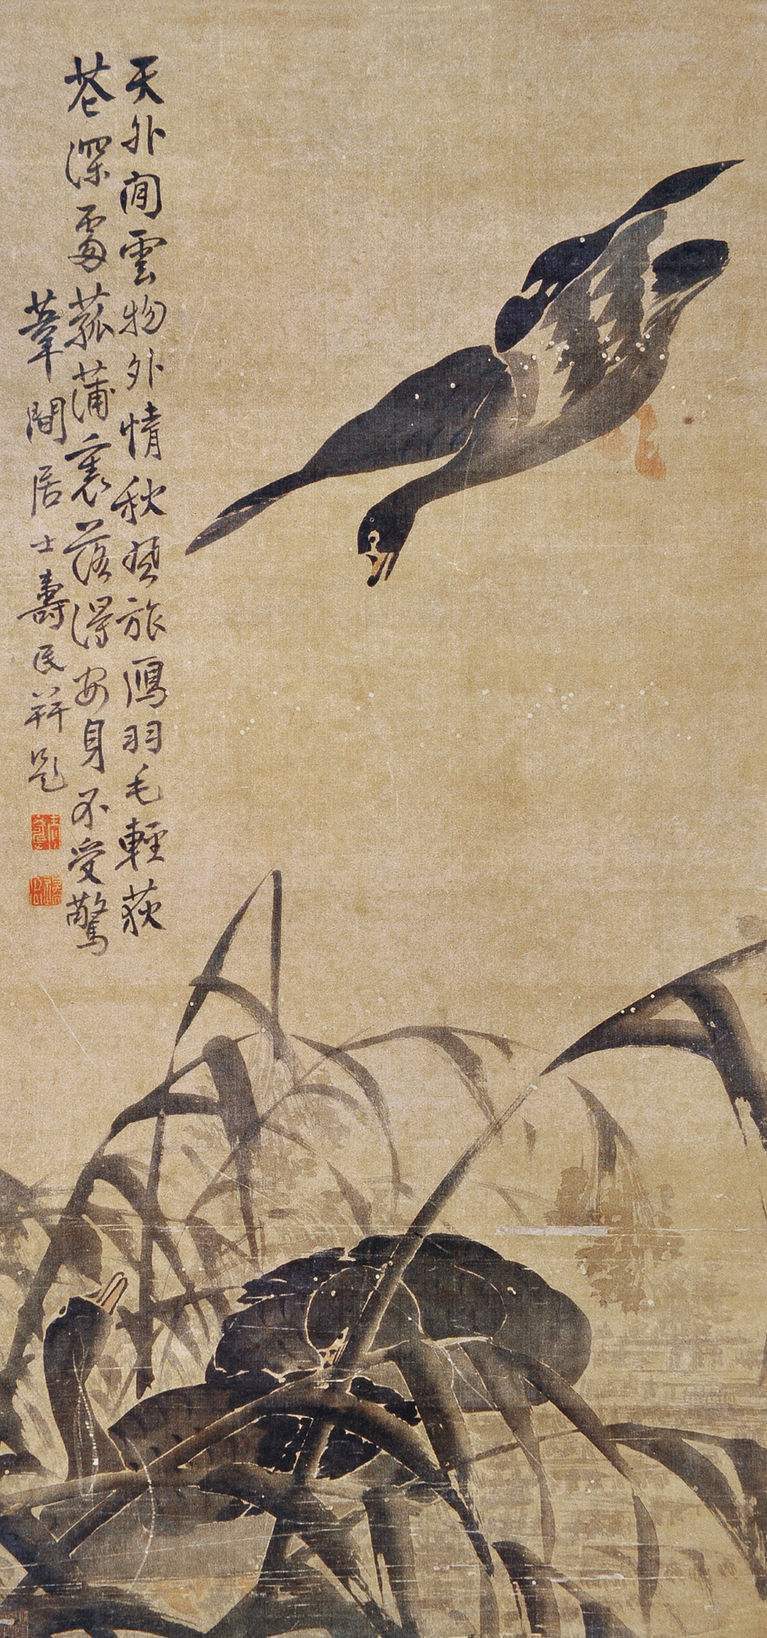 天外閒雲物外情秋空旅鴈羽毛輕荻
花深處菰蒲裏落得安身不受驚
葦間居士壽民并題